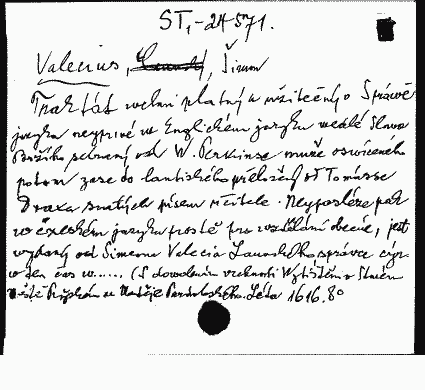 ST,-24 571.
Valecius, Launský, Šimon
Traktát welmi platný a užitečný o Spráwě
jazyka neyprwé w Englickém jazyku wedlé Slova
Božího sebraný od W. Perkinse muže oswíceného
potom zase do latinského přeložený od Tomásse
Draxa swatých písem učitele. Neyposléze pak
w českém jazyku prostě pro wzdělání obecné, jest
wydaný od Simeona Valecia Launského správce cýr.
w ten čas w...... (S dowolením wrchnosti Wytištěn w Starém
Městě Pražském u Matěje Pardubského. Léta 1616. 8°